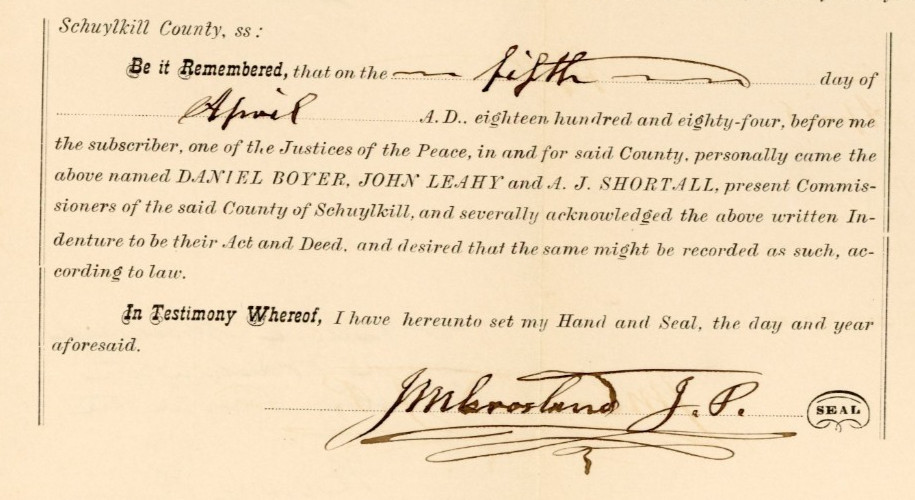 Schuylkill County, ss:
Be it Remembered, that on the fifth day of
April A. D., eighteen hundred and eighty-four, before me
the subscriber, one of the Justices of the Peace, in and for said County, personally came the
above named DANIEL BOYER, JOHN LEAHY and A. J. SHORTALL, present Commis-
sioners of the said County of Schuylkill, and severally acknowledged the above written In-
denture to be their Act and Deed, and desired that the same might be recorded as such, ac-
cording to law.
In Testimony Whereof, I have hereunto set my Hand and Seal, the day and year
aforesaid.
J. P. SEAL